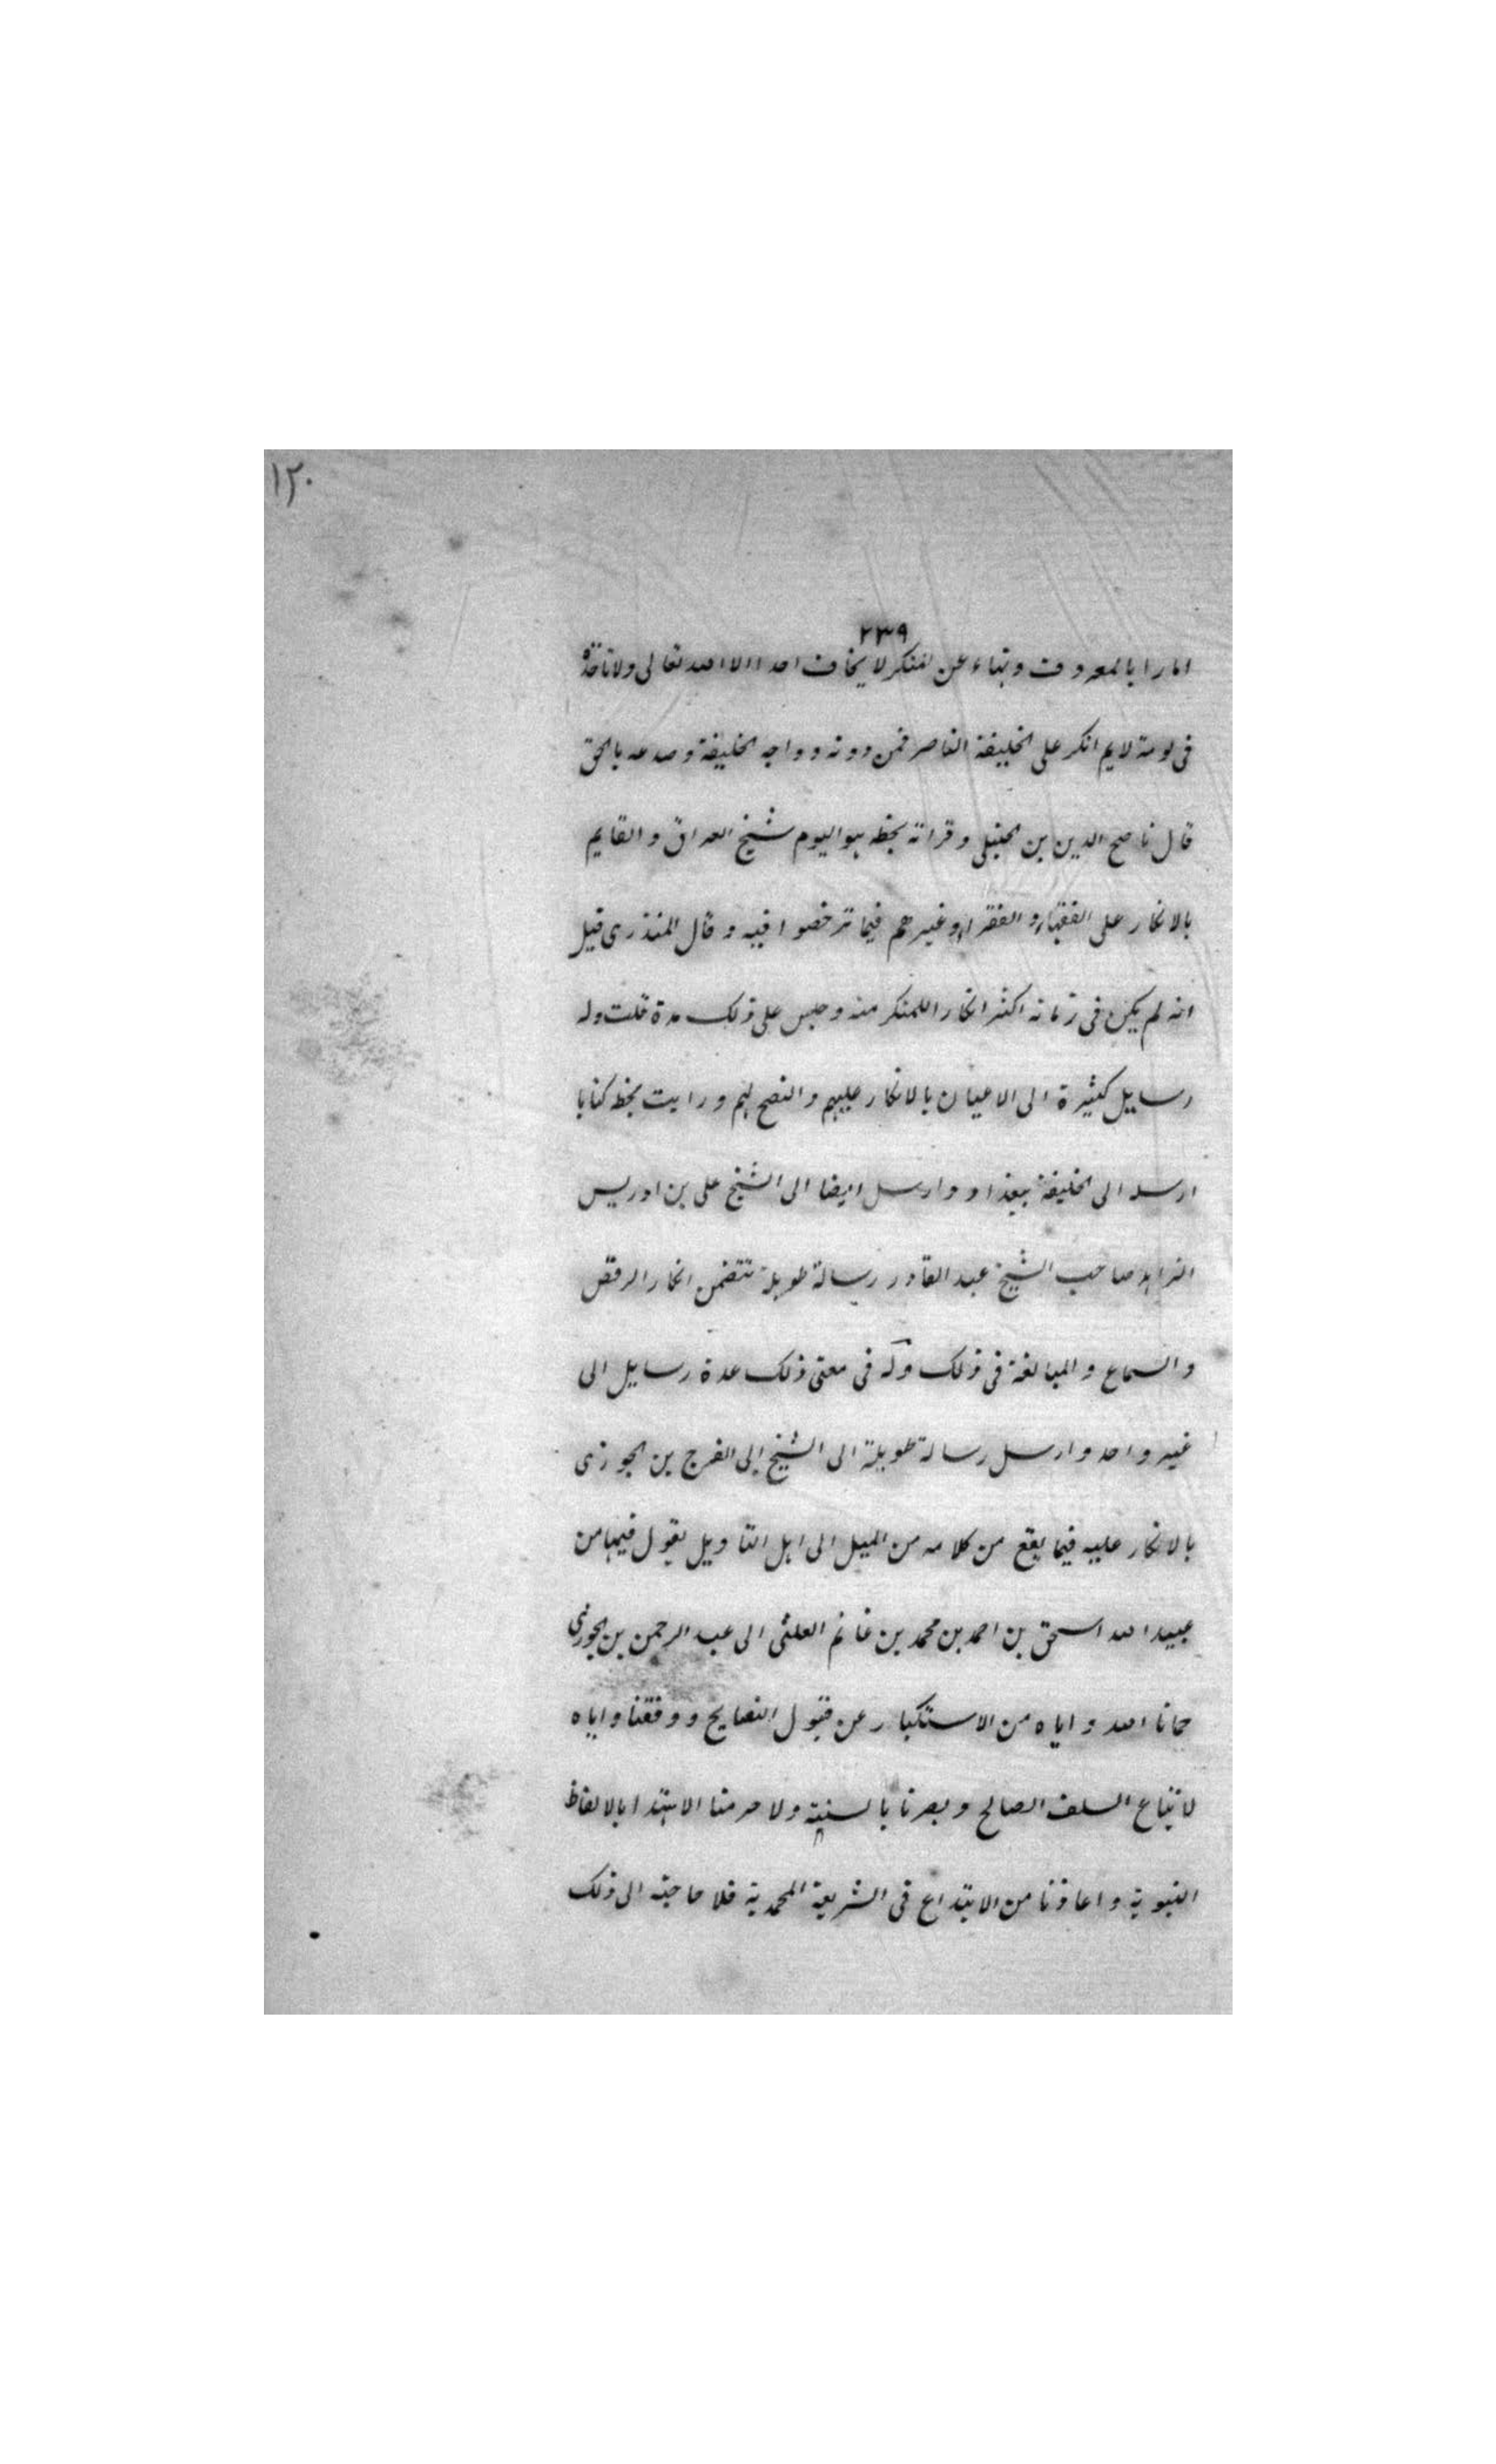 ١٢٠
٢٣٩
امارا بالمعروف ونهاء عن المنكر لا يخاف احدا الا الله تعالى ولا تاخذه
فى لومة لايم انكر على الخليفة الناصر فمن دونه وواجه الخليفة وصدعه بالحق
قال ناصح الدين بن الحنبلى وقراته بخطه هو اليوم شيخ العراق والقايم
بالانكار على الفقهاء والفقراء وغيرهم فيما ترخصوا فيه وقال المنذرى قيل
انه لم يكن فى زمانه اكثر انكارا للمنكر منه وحبس على ذلك مدة قلت وله
رسايل كثيرة الى الاعيان بالانكار عليهم والنصح لهم ورايت بخطه كتابا
ارسله الى الخليفة ببغداد وارسل ايضا الى الشيخ على بن ادريس
الزاهد صاحب الشيخ عبد القادر رسالة طويلة تتضمن انكار الرقص
والسماع والمبالغة فى ذلك وله فى معنى ذلك عدة رسايل الى
غير واحد وارسل رسالة طويلة الى الشيخ ابى الفرج بن الجوزى
بالانكار عليه فيما يقع من كلامه من الميل الى اهل التاويل يقول فيها من
عبيد الله اسحق بن احمد بن محمد بن غانم العلثى الى عبد الرحمن بن الجوزى
حمانا الله واياه من الاستكبار عن قبول النصايح ووفقنا واياه
لاتباع السلف الصالح وبصرنا بالسنية ولا حرمنا الاهتدا بالالفاظ
النبوية واعاذنا من الابتداع فى الشريعة المحمدية فلا حاجة الى ذلك